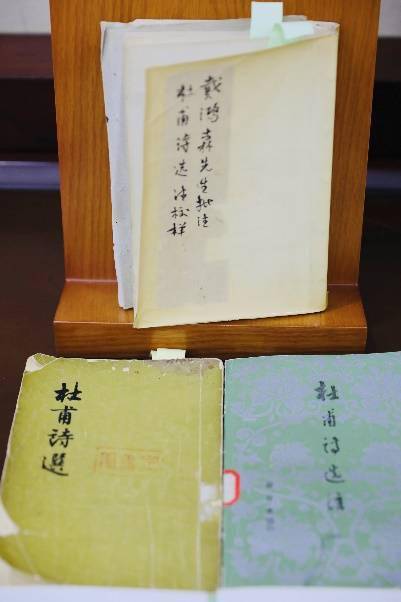 戴鸿森先生批注
杜甫诗选注校样
杜甫詩選
杜甫诗选注